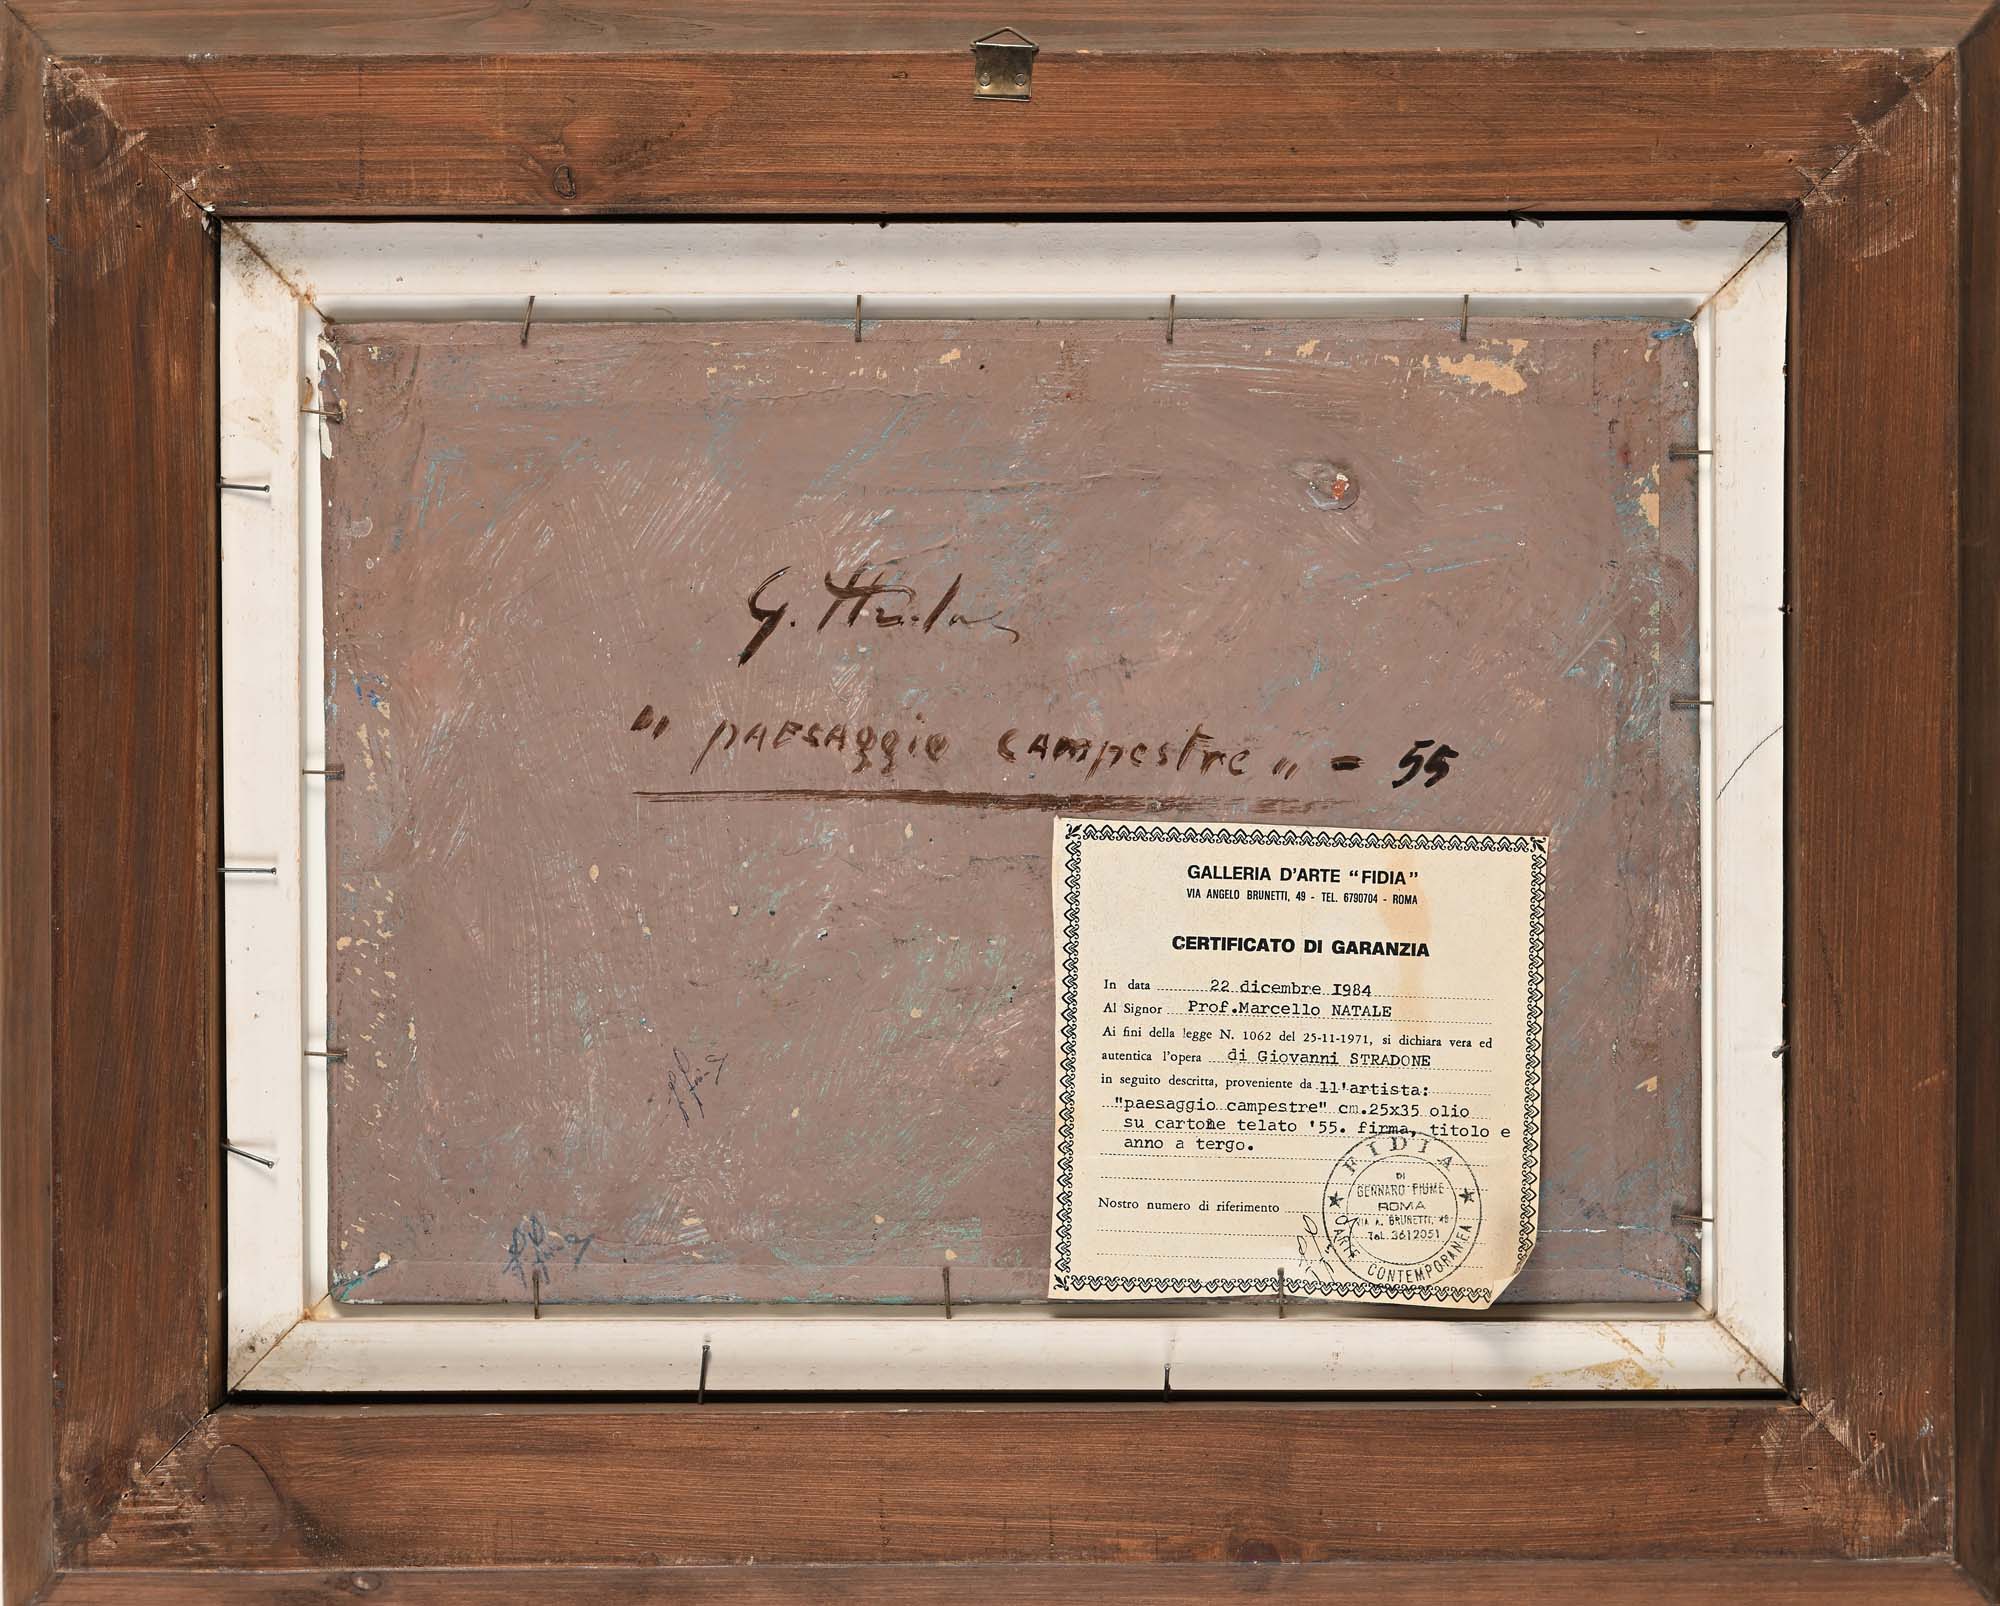 G. Stradone
" paesaggio campestre " = 55
GALLERIA D'ARTE "FIDIA"
VIA ANGELO BRUNETTI, 49 - TEL. 6790704 - ROMA
CERTIFICATO DI GARANZIA
In data 22 dicembre I984
Al Signor Prof.Marcello NATALE
Ai fini della legge N. 1062 del 25-11-1971, si dichiara vera ed
autentica l'opera di Giovanni STRADONE
in seguito descritta, proveniente da ll'artista:
"paesaggio campestre" cm.25x35 olio
su cartone telato '55. firma, titolo e
anno a tergo.
Nostro numero di riferimento
FIDIA
DI
GENNARO FIUME
ROMA
VIA A. BRUNETTI, 49
Tel. 3612051
ARTE CONTEMPORANEA